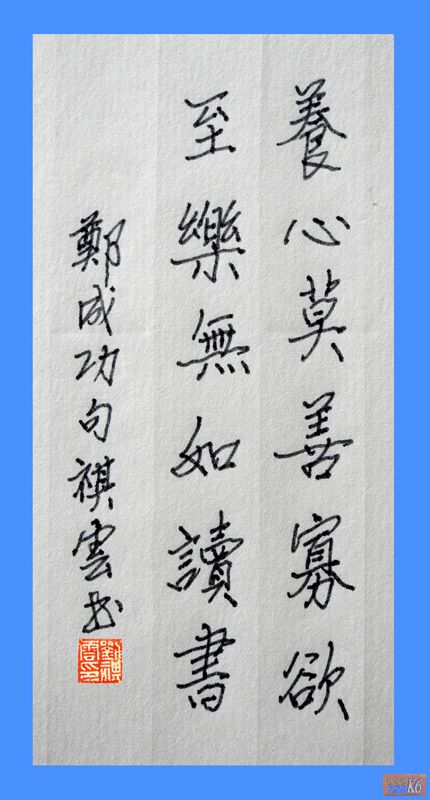 養心莫善寡欲
至樂無如讀書
鄭成功句祺雲书
K6